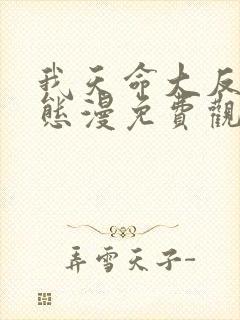 我天命大反
態漫免費觀
弄雪天子-